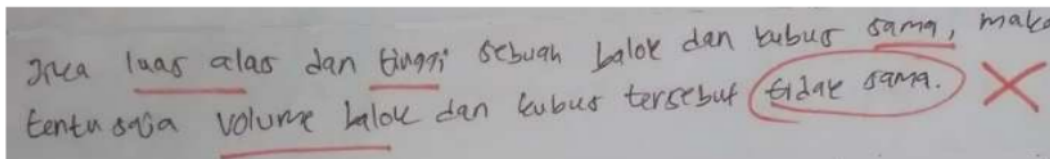 Jika luas alas dan tinggi sebuah balok dan kubus sama, maka
tentu saja volume balok dan kubus tersebut tidak sama.